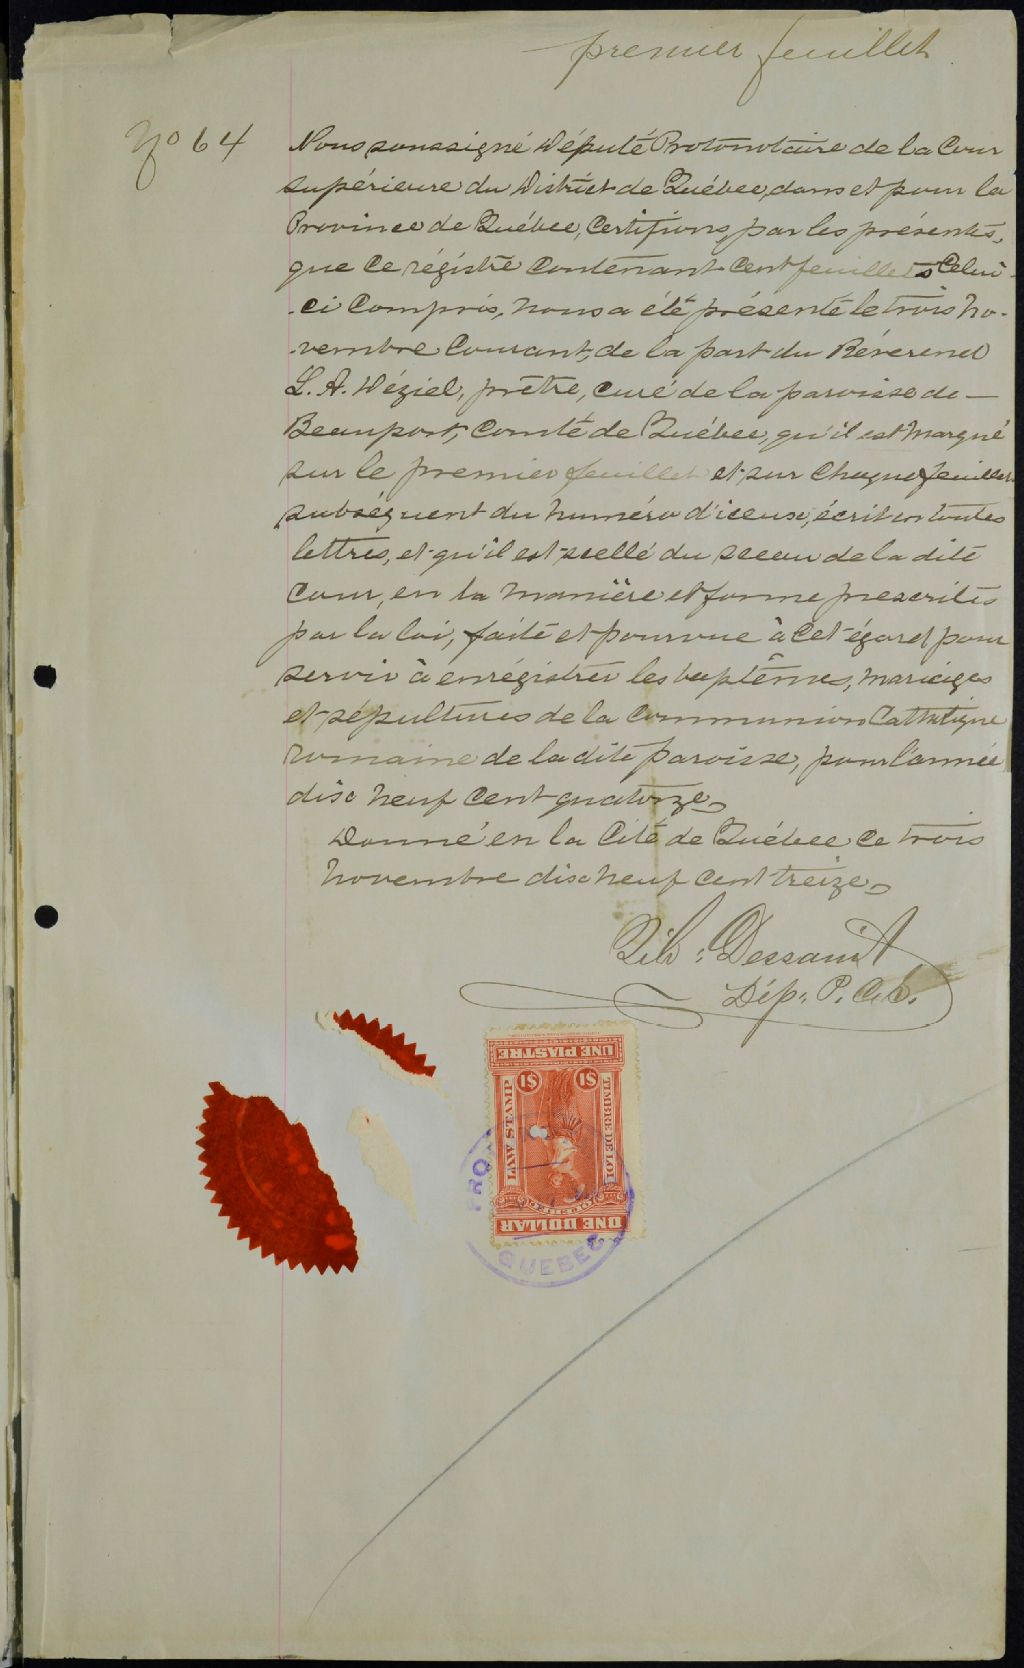 premier feuillet
No 64
Nous soussigné Député Protonotaire de la Cour
supérieure du District de Québec, dans et pour la
Province de Québec, Certifions, par les présentes,
que ce régistre contenant cent feuillets celui
-ci compris, nous a été présenté le trois no-
-vembre courant, de la part du Révérend
L. A. Déziel, prêtre, curé de la paroisse de —
Beauport, Comté de Québec, qu'il est marqué
sur le premier feuillet et sur chaque feuillet
subséquent du numéro d'iceux, écrit en toutes
lettres, et qu'il est scellé du sceau de la dite
Cour, en la manière et forme prescrites
par la loi, faite et pourvue à cet égard, pour
servir à enrégistrer les baptêmes, mariages
et sépultures de la Communion Catholique
romaine de la dite paroisse, pour l'année
dix neuf cent quatorze
Donné en la Cité de Québec ce trois
novembre dix neuf cent treize
Dessaint
Dép. P. C. S.
UNE PIASTRE
$1 $1
LAW STAMP
TIMBRE DE LOI
QUEBEC
ONE DOLLAR
QUEBEC